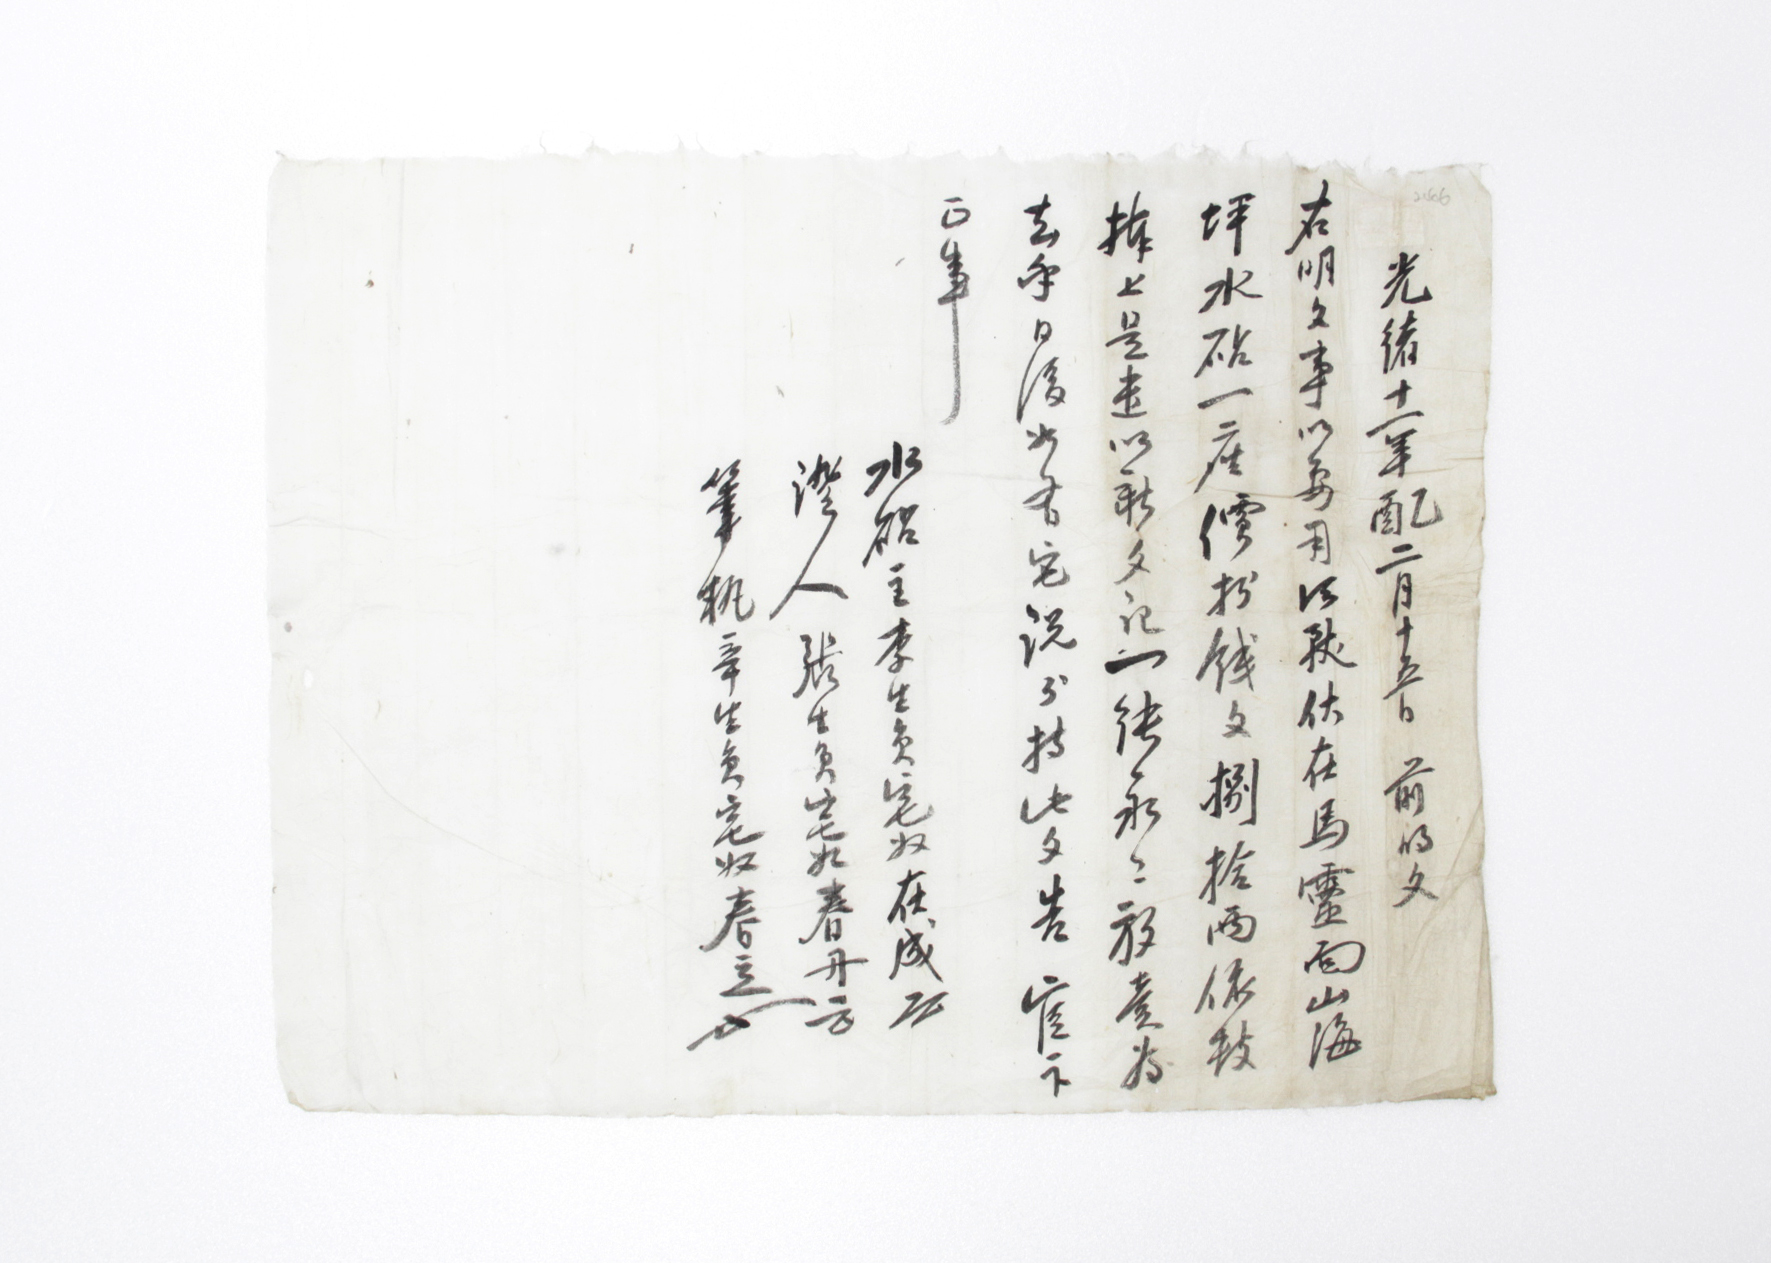 光緒十一年乙酉二月十五日 前明文
右明文事以要用所致伏在馬靈面山海
坪水砧一座價折錢文捌拾兩依數
捧上是遣以新文記一張永〻放賣爲
去乎日後如有宅說則持此文告官卞
正事
水砧主李生員宅奴在成
證人張生員宅奴春丹
筆執辛生員宅奴春立
2466